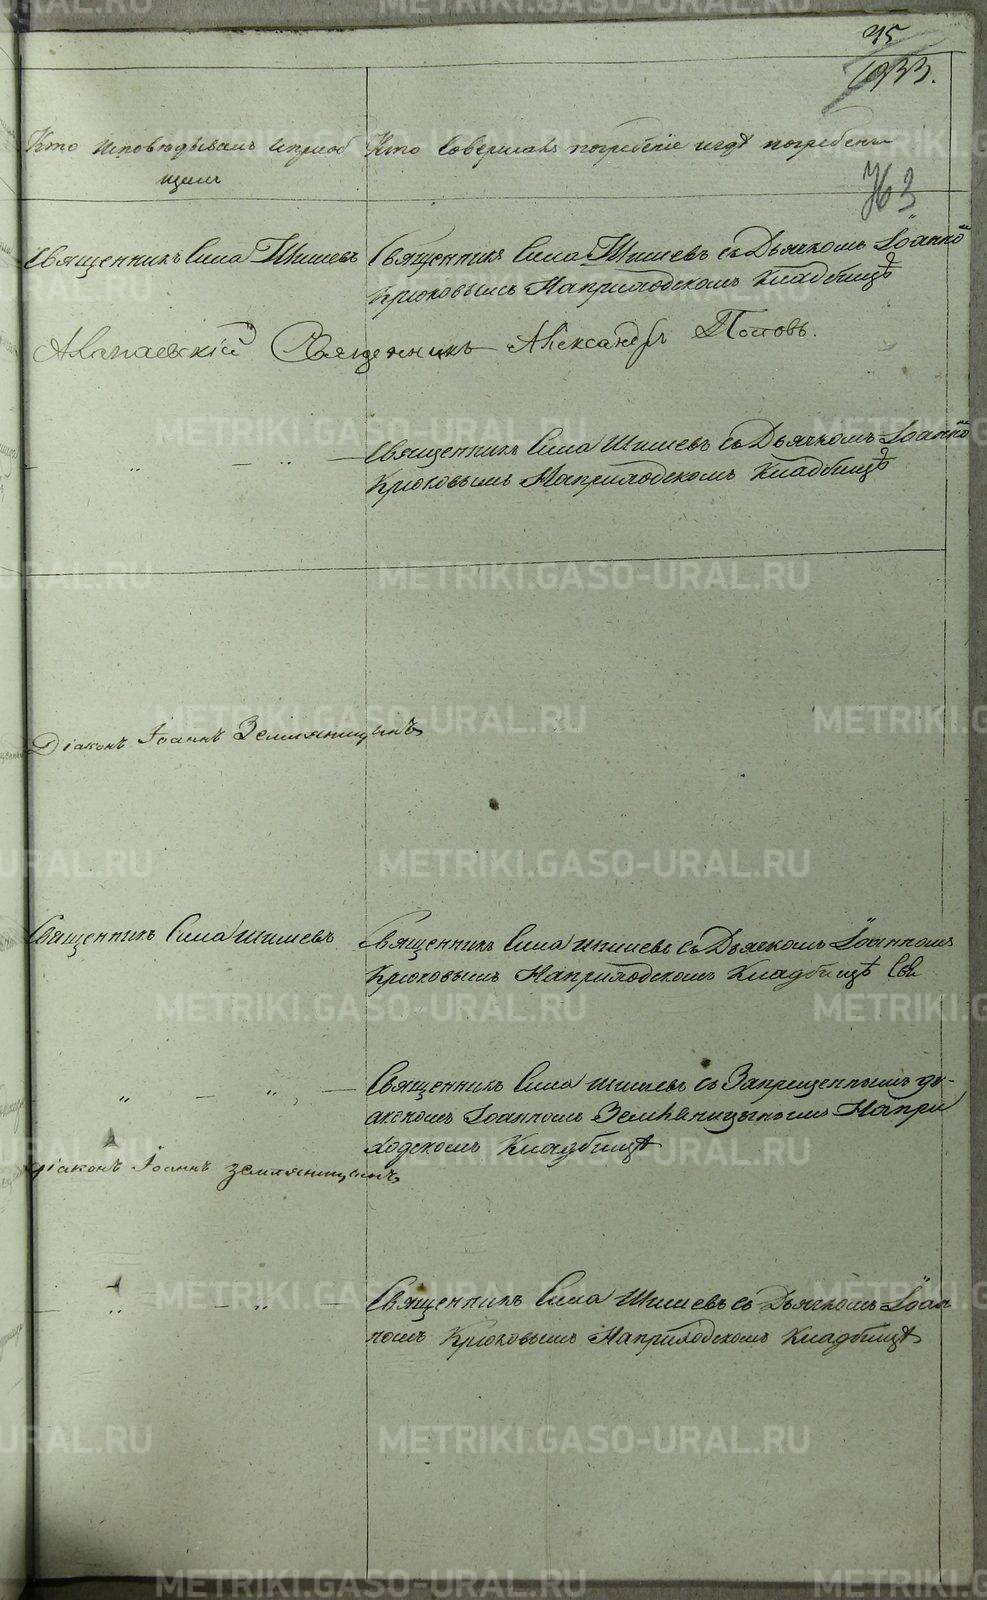 95
1033.
Кто исповѣдывалъ и пріоб Кто Совершалъ погребеніе и гдѣ погребены
щалъ
763
Священникъ Сила Шишевъ Священникъ Сила Шишевъ съ Дьячкомъ Іоанно
Крюковымъ На приходскомъ Кладбищѣ
Алапаевскій Священникъ Александръ Поповъ.
Священникъ Сила Шишевъ съ Дьячкомъ Іоанно
— " — " — Крюковымъ На приходскомъ Кладбищѣ
Діаконъ Іоаннъ Земляницынъ
Священникъ Сила Шишевъ Священникъ Сила Шишевъ съ Дьячкомъ Іоанномъ
Крюковымъ На приходскомъ Кладбищѣ
" — " — Священникъ Сила Шишевъ съ Запрещеннымъ ді-
акономъ Іоанномъ Земляницынымъ На при
ходскомъ Кладбищѣ
діаконъ Іоаннъ земляницынъ
— " — " — Священникъ Сила Шишевъ съ Дьячкомъ Іоан
номъ Крюковымъ На приходскомъ Кладбищѣ
METRIKI.GASO-URAL.RU